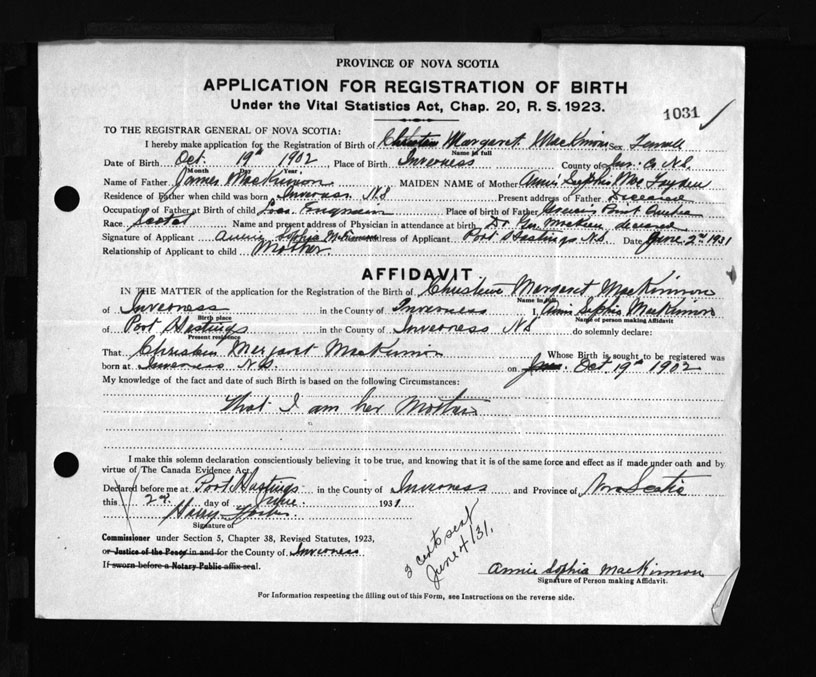 PROVINCE OF NOVA SCOTIA
APPLICATION FOR REGISTRATION OF BIRTH
Under the Vital Statistics Act, Chap. 20, R. S. 1923.
1031
TO THE REGISTRAR GENERAL OF NOVA SCOTIA:
I hereby make application for the Registration of Birth of Christein Margaret MacKinnon Sex Female
Name in full
Date of Birth Oct. 19th 1902, Place of Birth Inverness County of Inv. Co N.S.
Month Day Year
Name of Father James MacKinnon MAIDEN NAME of Mother Annie Sophia
Residence of Father when child was born Inverness N.S Present address of Father Deceased
Occupation of Father at Birth of child Place of Birth of Father
Race Scotch Name and present address of Physician in attendance at birth Dr deceased
Signature of Applicant Annie Sophia McKinnon Address of Applicant Port Hastings N.S. Date June 2nd 1931
Relationship of Applicant to child Mother.
AFFIDAVIT
IN THE MATTER of the application for the Registration of the Birth of Christein Margaret MacKinnon
Name in full
of Inverness in the County of Inverness I, Annie Sophia MacKinnon
Birth place Name of person making Affidavit
of Port Hastings in the County of Inverness N.S do solemnly declare:
Present residence
That Christein Margaret MacKinnon Whose Birth is sought to be registered was
born at Inverness N.S. on Oct 19th 1902
My knowledge of the fact and date of such Birth is based on the following Circumstances:
That I am her Mother
I make this solemn declaration conscientiously believing it to be true, and knowing that it is of the same force and effect as if made under oath and by
virtue of The Canada Evidence Act.
Declared before me at Port Hastings in the County of Inverness and Province of Nova Scotia
this 2nd day of June 1931
Harry
Signature of
Commissioner under Section 5, Chapter 38, Revised Statutes, 1923,
or Justice of the Peace in and for the County of Inverness.
If sworn before a Notary Public affix seal.
3 certs sent
June 4/31.
Annie Sophia MacKinnon
Signature of Person making Affidavit.
For Information respecting the filling out of this Form, see Instructions on the reverse side.